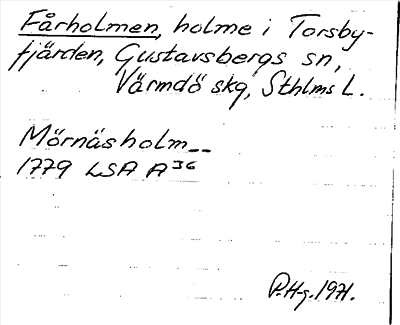 Fårholmen, holme i Torsby-
fjärden, Gustavsbergs sn,
Värmdö skg, Sthlms L.
Mörnäsholm--
1779 LSA A36
P.H-g. 1971.